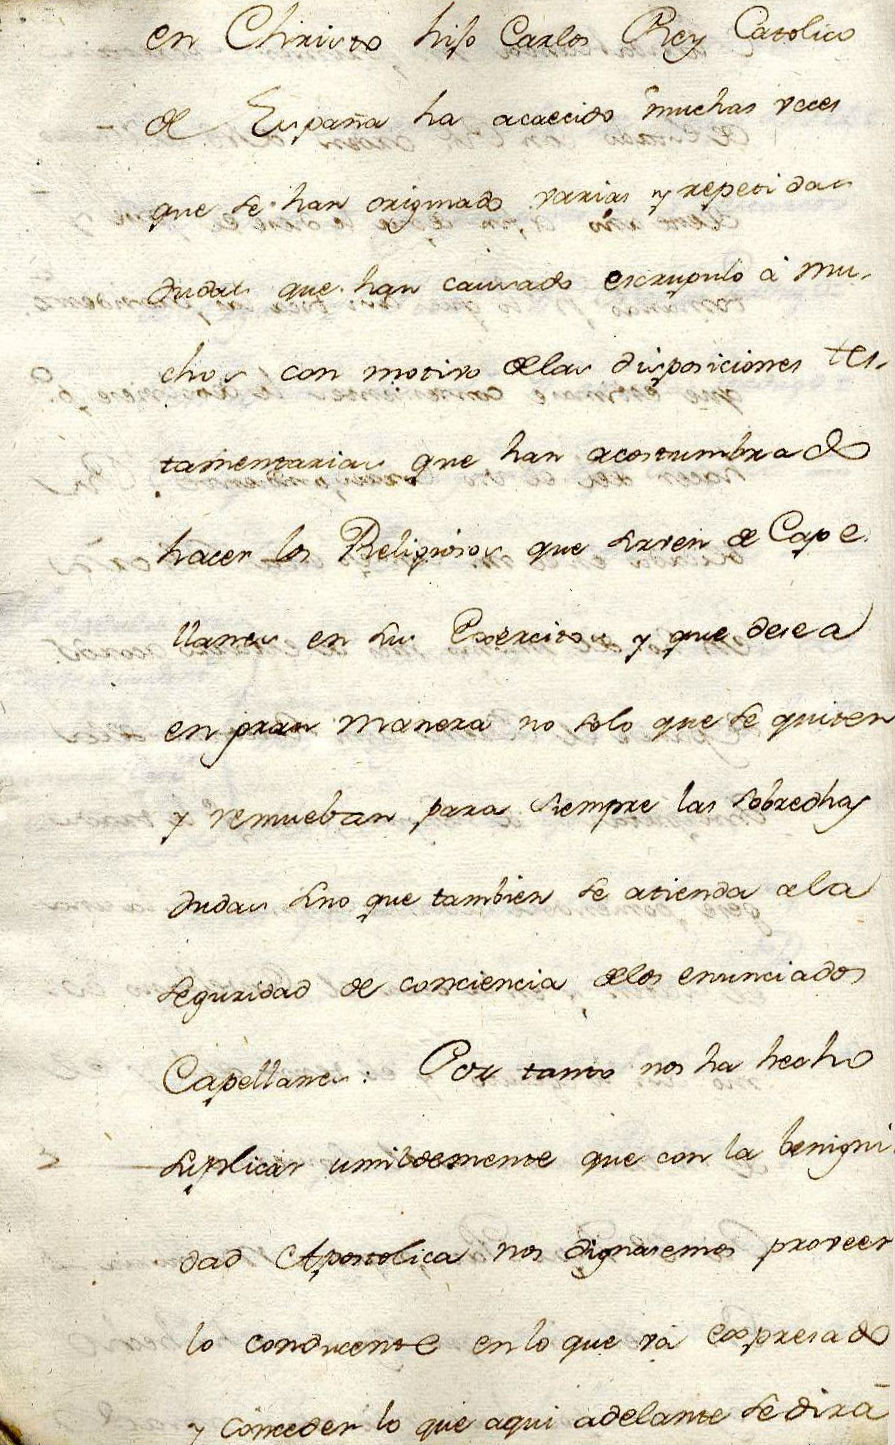 en Christo hijo Carlos Rey Catolico
de España ha acaecido muchas veces
que se han originado varias y repetidas
dudas que han causado escrupulo à mu-
chos con motivo delas disposiciones tes-
tamentarias que han acostumbrado
hacer los Religiosos que sirven de Cape
llanes en sus Exercitos y que desea
en gran manera no solo que se quiten
y remueban para siempre las sobredhas
dudas sino que tambien se atienda ala
seguridad de conciencia delos enunciados
Capellanes: Por tanto nos ha hecho
suplicar umildemente que con la benigni-
dad Apostolica nos dignasemos proveer
lo conducente en lo que và expresado
y conceder lo que aqui adelante se dirà